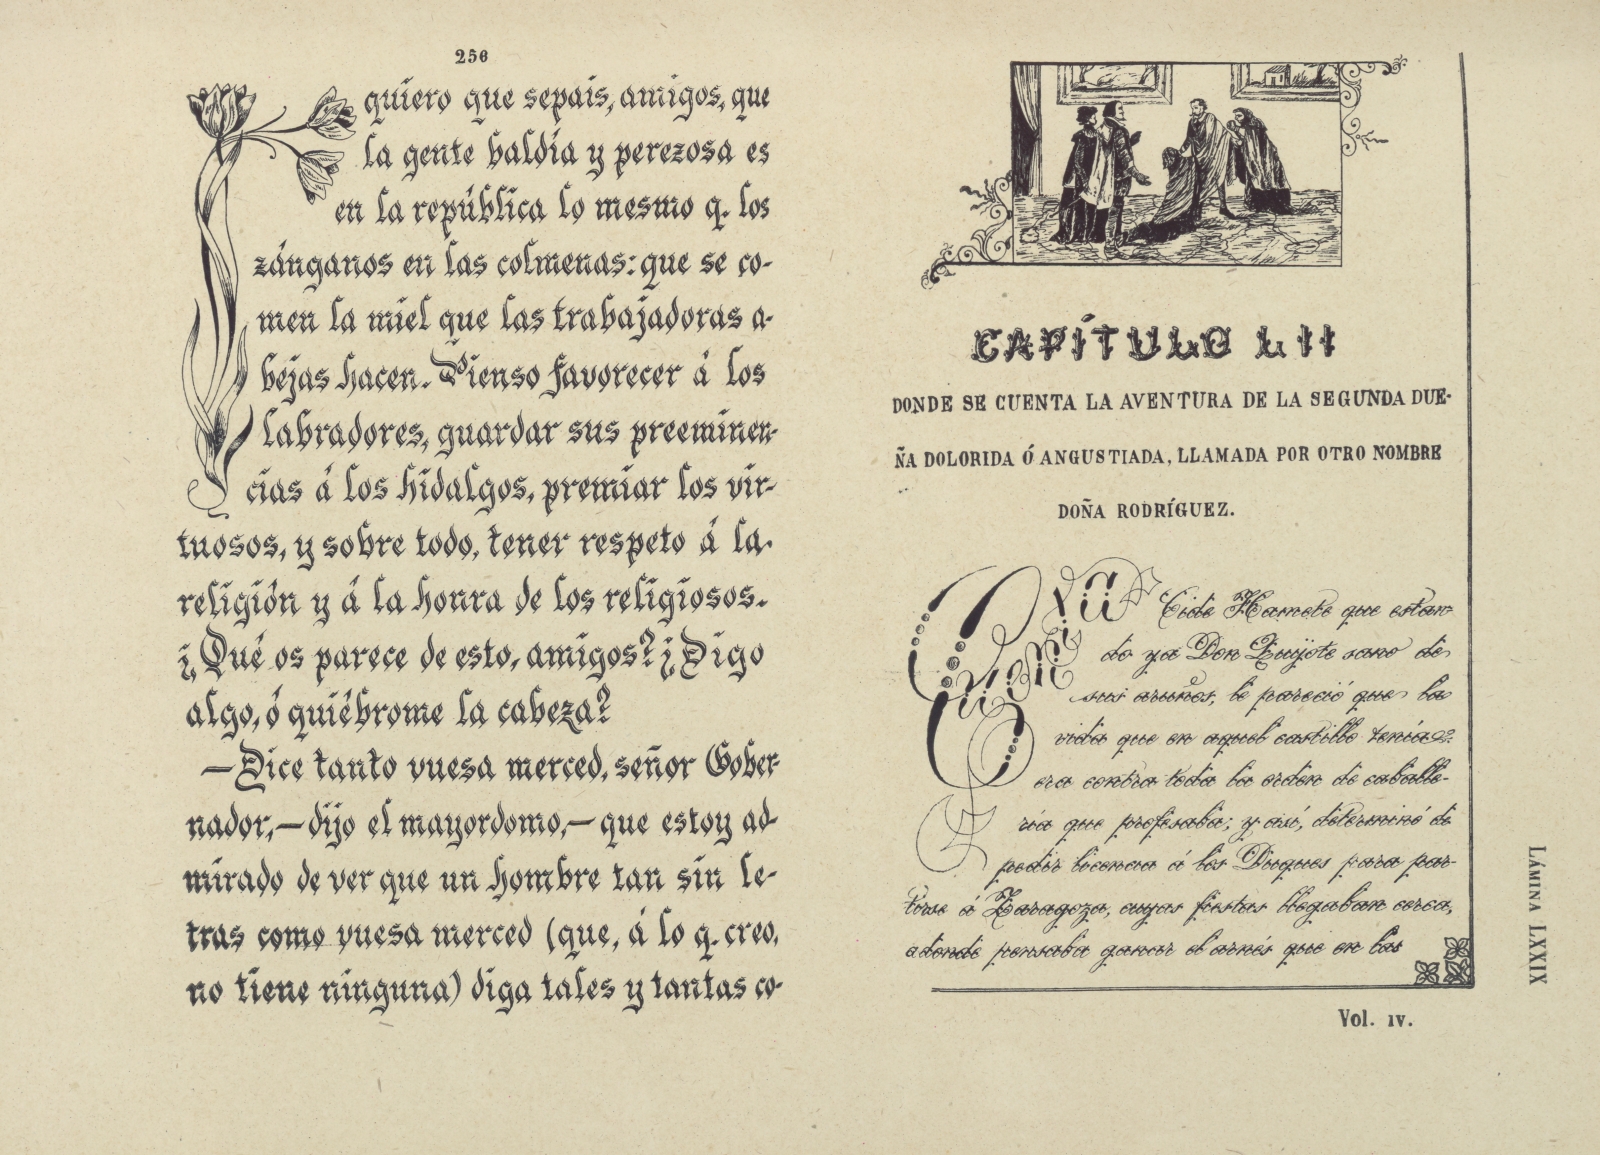 256
quiero que sepais, amigos, que
la gente baldía y perezosa es
en la república lo mesmo q. los
zánganos en las colmenas: que se co-
men la miel que las trabajadoras a-
bejas hacen. Pienso favorecer á los
labradores, guardar sus preeminen-
cias á los hidalgos, premiar los vir-
tuosos, y sobre todo, tener respeto á la
religión y á la honra de los religiosos.
¿Qué os parece de esto, amigos? ¿Digo
algo, ó quiébrome la cabeza?
—Dice tanto vuesa merced, señor Gober-
nador,—dijo el mayordomo,—que estoy ad-
mirado de ver que un hombre tan sin le-
tras como vuesa merced (que, á lo q. creo,
no tiene ninguna) diga tales y tantas co-
CAPÍTULO LII
DONDE SE CUENTA LA AVENTURA DE LA SEGUNDA DUE-
ÑA DOLORIDA Ó ANGUSTIADA, LLAMADA POR OTRO NOMBRE
DOÑA RODRÍGUEZ.
Cuenta Cide Hamete que estan-
do ya Don Quijote sano de
sus aruños, le pareció que la
vida que en aquel castillo tenía
era contra toda la orden de caballe-
ría que profesaba; y así, determinó de
pedir licencia á los Duques para par-
tirse á Zaragoza, cuyas fiestas llegaban cerca,
adonde pensaba ganar el arnés que en las
LÁMINA LXXIX
Vol. IV.